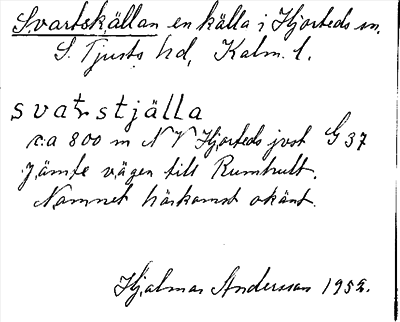 Svartskällan en källa i Hjorteds sn.
S. Tjusts hd, Kalm. l.
svatstjälla
c:a 800 m N V Hjorteds jvst G 37
jämte vägen till Rumhult.
Namnet härkomst okänt.
Hjalmar Andersson 1952.